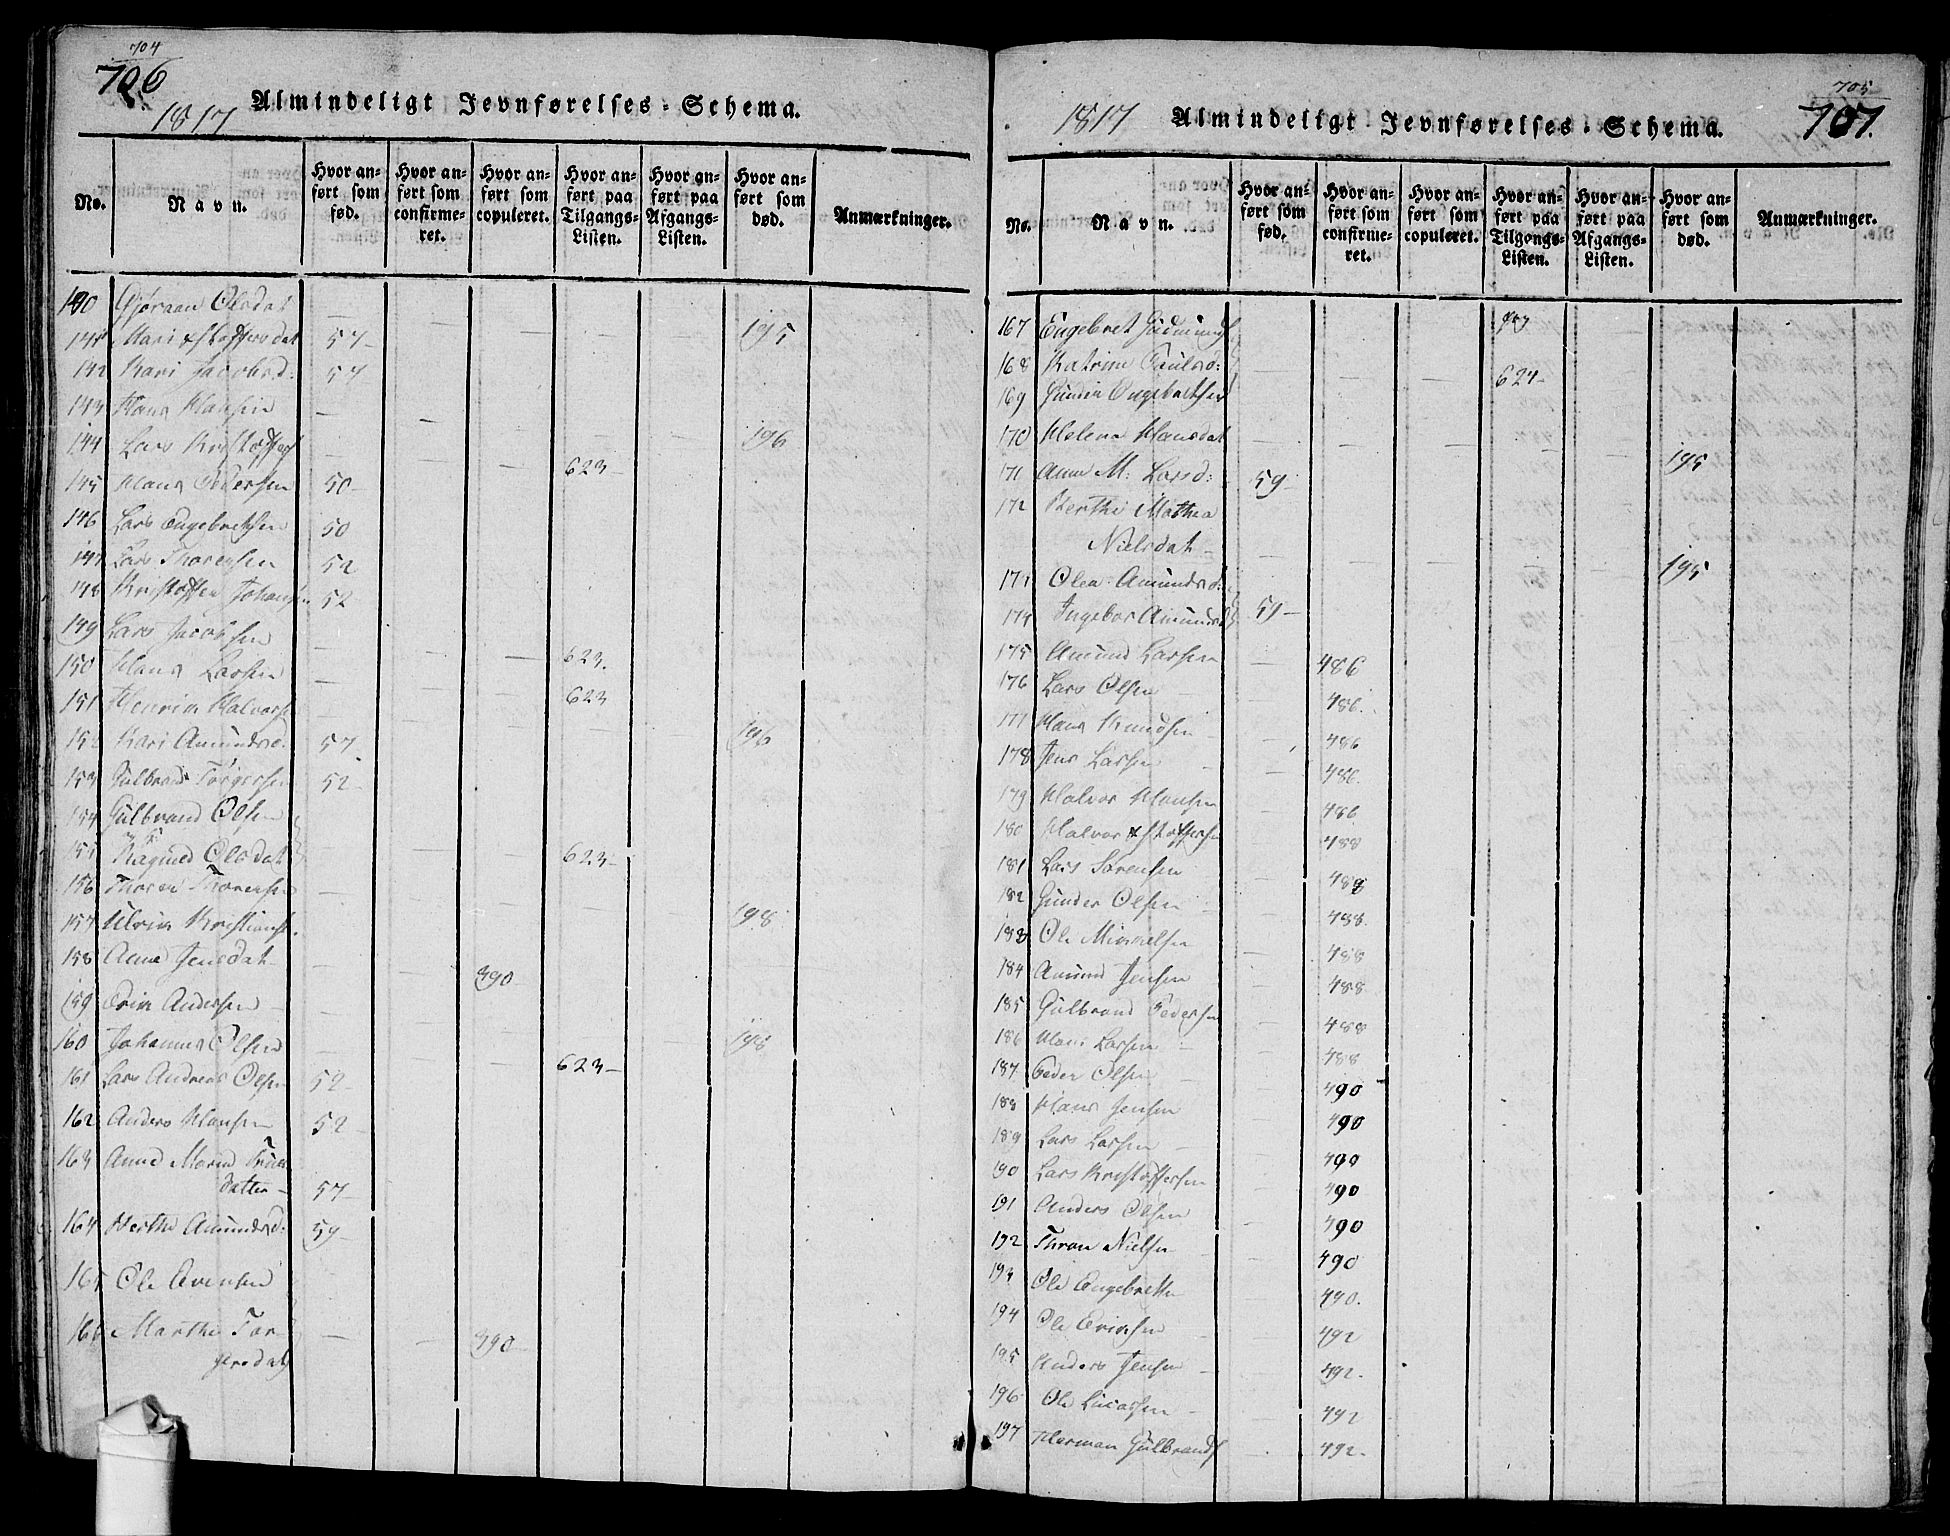 704
706
1817 Almindeligt Jevnførelses-Schema.
No. Navn. Hvor anført som fød. Hvor anført som confirmeret. Hvor anført som copuleret. Hvor anført paa Tilgangs-Listen. Hvor anført paa Afgangs-Listen. Hvor anført som død. Anmærkninger.
140 Gjøraan Olsdat — 195
141 Mari Kristoffersdat 57
142 Kari Jacobsd: 57
143 Hans Hansen — 196
144 Lars Kristoffers — 623
145 Hans Pedersen 50
146 Lars Engebretsen 50
147 Lars Thoresen 52
148 Kristoffer Johansen 52
149 Lars Jacobsen — 623.
150 Hans Larsen — 623
151 Henrik Halvors — 196
152 Kari Amundsd: 57
153 Gulbrand Torgersen 52
154 Gulbrand Olsen
155 Ragnild Olsdat — 623
156 Thore Thoresen — 198
157 Ulrik Kristians.
158 Anne Jensdat — 390
159 Erik Andersen — 198
160 Johannes Olsen — 623
161 Lars Andreas Olsen 52
162 Anders Hansen 52
163 Anne Maria
datter 57
164 Berthe Amundsd: 59
165 Ole Evensen
166 Marthe Tor-
gersdat — 390
705
707.
1817 Almindeligt Jevnførelses-Schema.
No. Navn. Hvor anført som fød. Hvor anført som confirmeret. Hvor anført som copuleret. Hvor anført paa Tilgangs-Listen. Hvor anført paa Afgangs-Listen. Hvor anført som død. Anmærkninger.
167 Engebret Gudmunds
168 Katrine Paulsd: — 624
169 Gunder Engebretsen
170 Helene Hansdat — 195
171 Anne M: Larsd: 59
172 Berthe Mathea
Nielsdat — 195
173 Olea Amundsd:
174 Ingebor Amundsd 59
175 Amund Larsen — 486
176 Lars Olsen — 486.
177 Hans Knudsen — 486
178 Jens Larsen — 486.
179 Halvor Hansen 486
180 Halvor Kristoffersen 488
181 Lars Sørensen 488
182 Gunder Olsen — 488.
183 Ole Mikkelsen 488
184 Amund Jensen 488
185 Gulbrand Pedersen 488
186 Hans Larsen — 488
187 Peder Olsen — 490
188 Hans Jensen 490
189 Lars Larsen — 490
190 Lars Kristoffersen 490
191 Anders Olsen 490
192 Thron Nielsen 490
193 Ole Engebretsen 490.
194 Ole Eriksen 492
195 Anders Jensen 492.
196 Ole Lucassen 492
197 Herman Gulbrands 492.